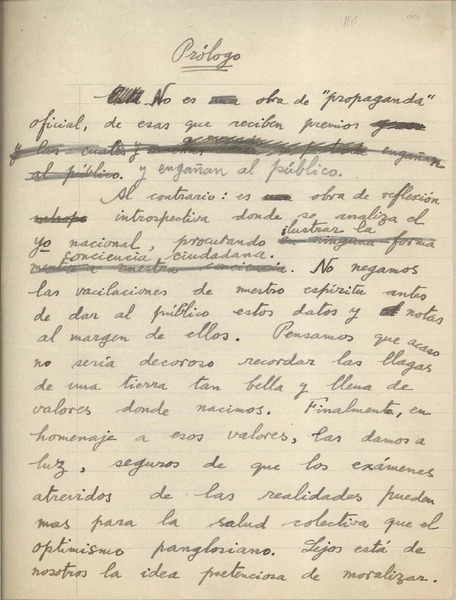 Prólogo
No es obra de "propaganda"
oficial, de esas que reciben premios
y las cuales engañan
al público. y engañan al público.
Al contrario: es obra de reflexión
introspectiva donde se analiza el
ilustrar la
yo nacional, procurando en ninguna forma
conciencia ciudadana.
nuestra conciencia. No negamos
las vacilaciones de nuestro espíritu antes
de dar al público estos datos y notas
al margen de ellos. Pensamos que acaso
no sería decoroso recordar las llagas
de una tierra tan bella y llena de
valores donde nacimos. Finalmente, en
homenaje a esos valores, las damos a
luz, seguros de que los exámenes
atrevidos de las realidades pueden
mas para la salud colectiva que el
optimismo panglosiano. Lejos está de
nosotros la idea pretenciosa de moralizar.